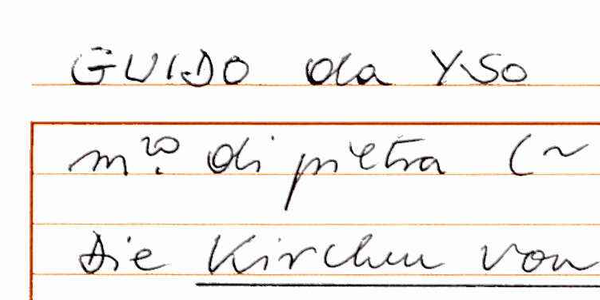 GUIDO da YSO
m.ro di pietra (~
Die Kirchen von